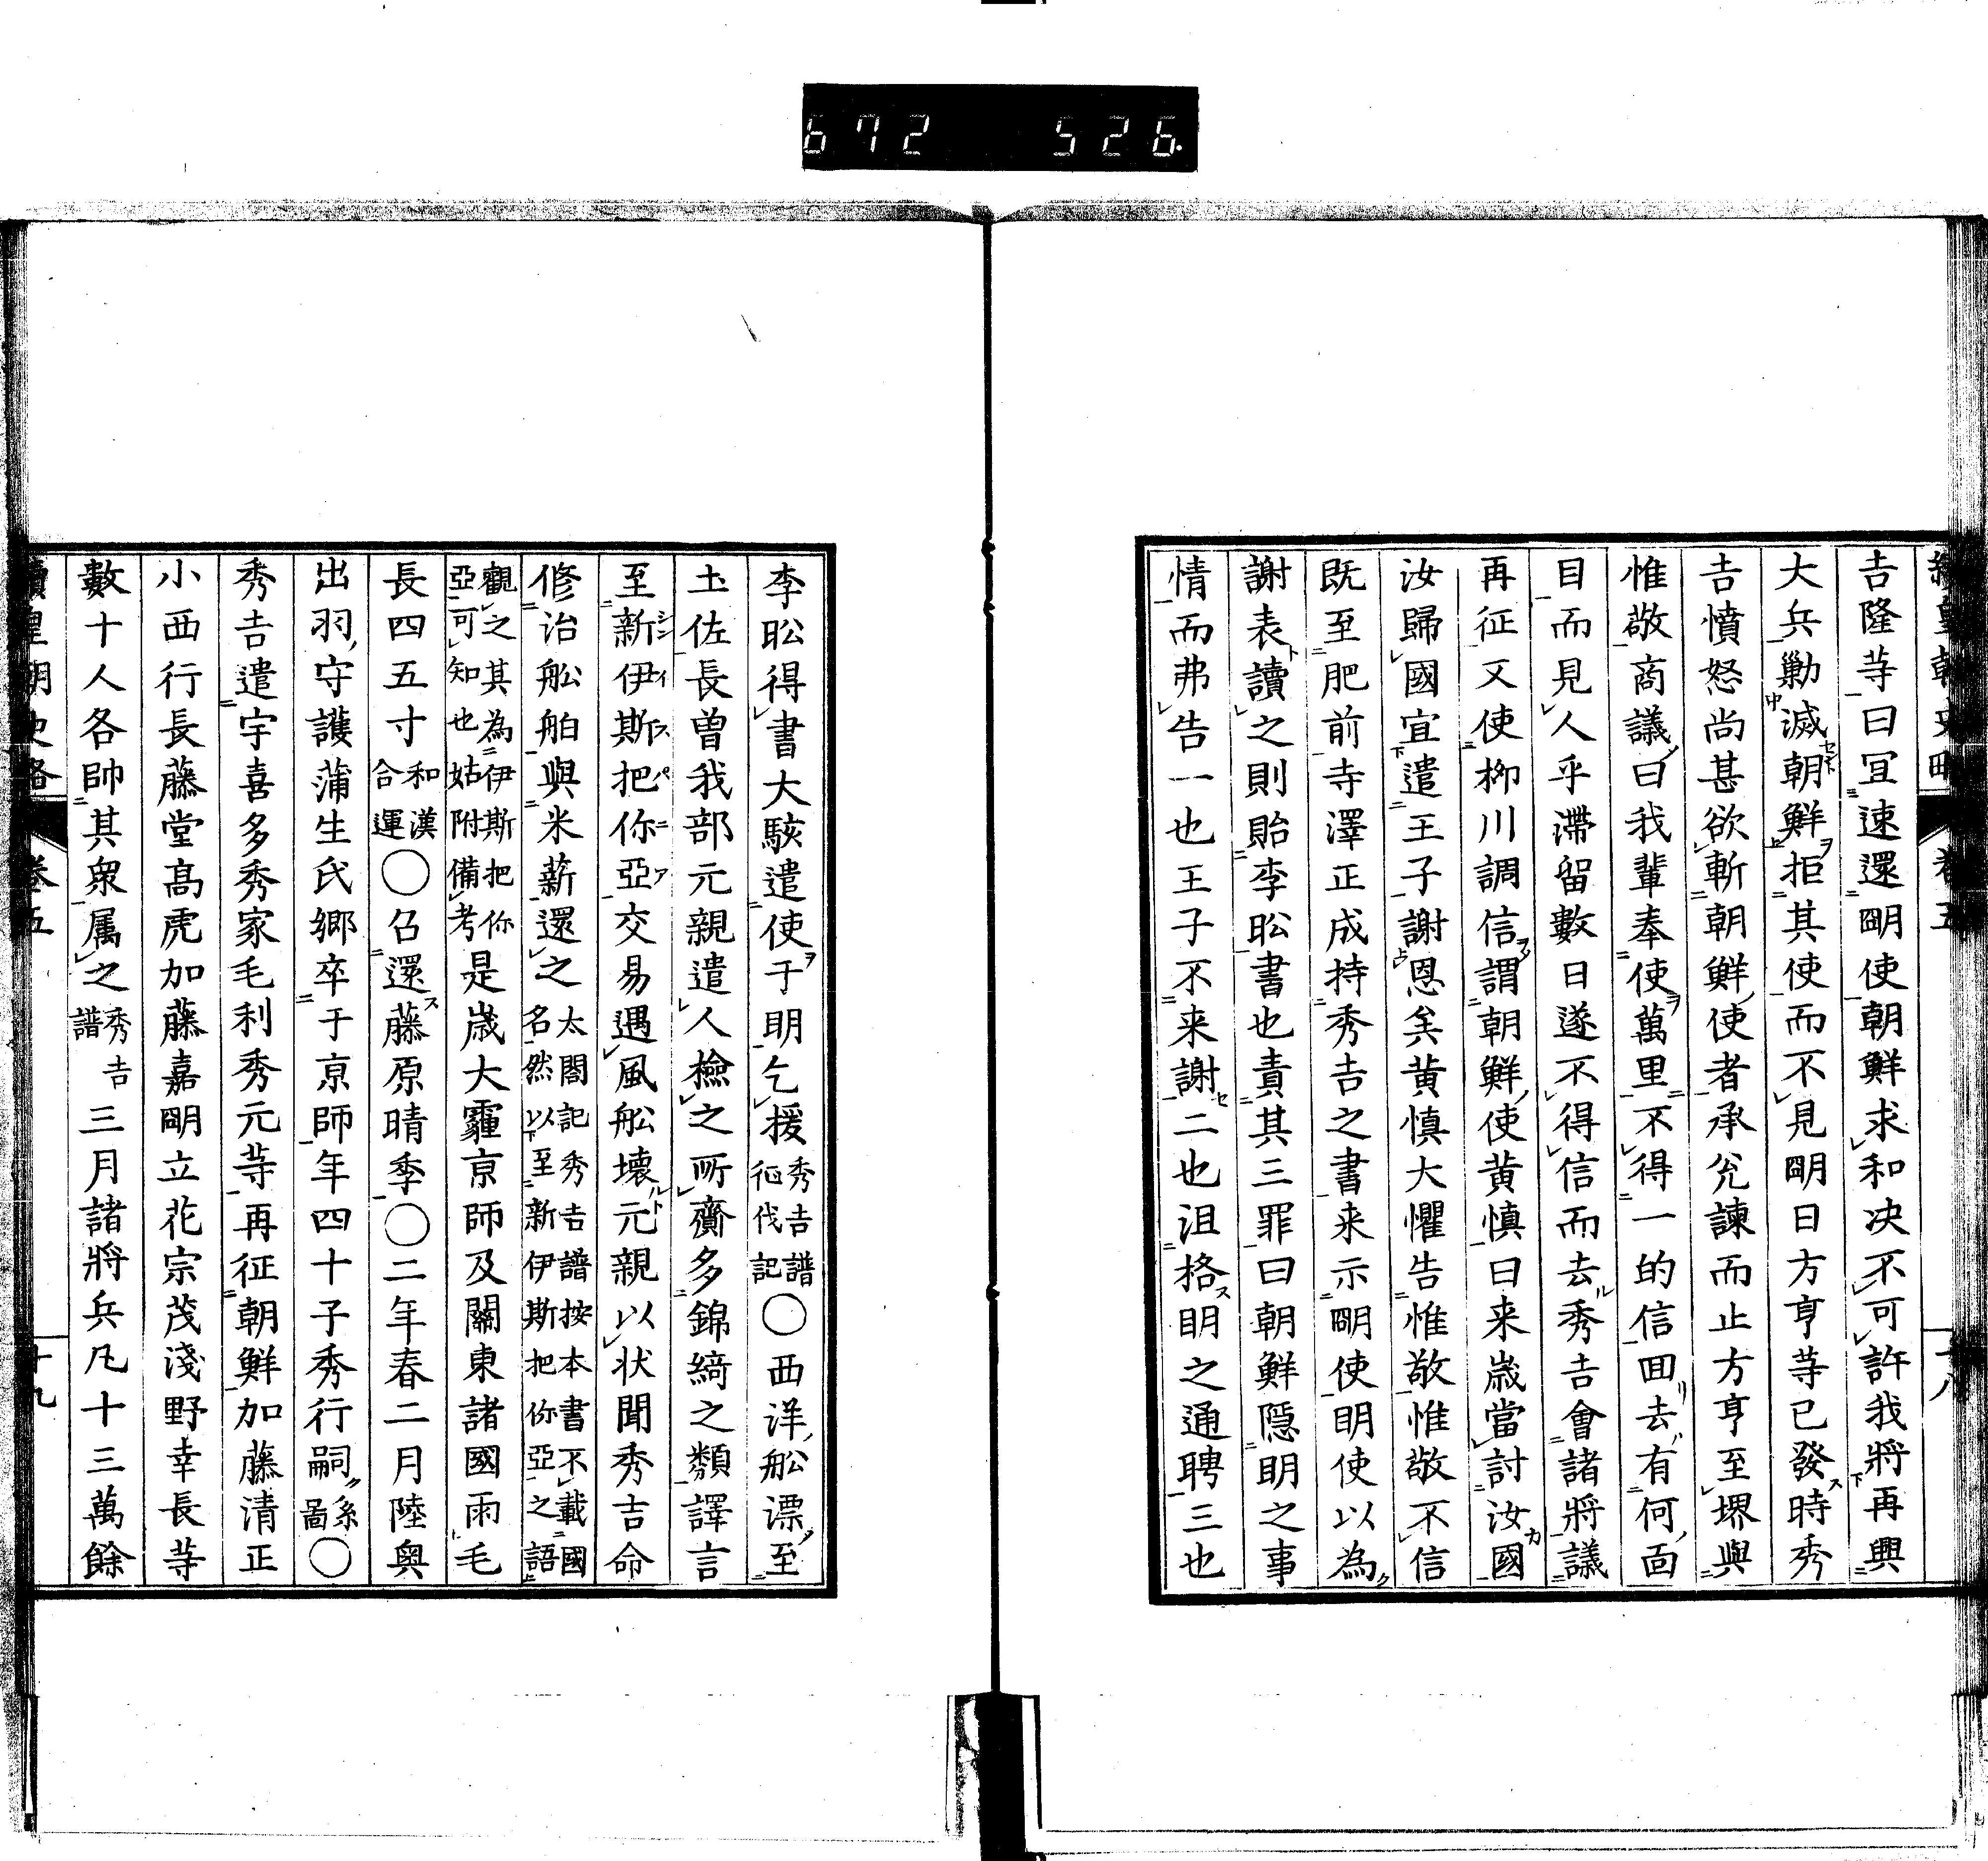 672 526.
續皇朝史略 卷五 十八
吉隆等曰冝速還朙使朝鮮求和決不可許我將再興
大兵勦滅朝鮮拒其使而不見朙日方亨等已發時秀
吉憤怒尚甚欲斬朝鮮使者承兊諫而止方亨至堺與
惟敬商議曰我輩奉使萬里不得一的信囬去有何面
目而見人乎滯留數日遂不得信而去秀吉會諸將議
再征又使柳川調信謂朝鮮使黄慎曰来嵗當討汝國
汝歸國宜遣王子謝恩矣黄慎大懼告惟敬惟敬不信
既至肥前寺澤正成持秀吉之書来示朙使明使以為
謝表讀之則貽李昖書也責其三罪曰朝鮮隠明之事
情而弗告一也王子不来謝二也沮格明之通聘三也
李昖得書大駭遣使于明乞援秀吉譜征伐記〇西洋舩漂至
土佐長曾我部元親遣人檢之所齎多錦綺之類譯言
至新伊斯把你亞交易遇風舩壊元親以状聞秀吉命
修治舩舶與米薪還之太閤記秀吉譜按本書不載國名然以下至新伊斯把你亞之語
觀之其為伊斯把你亞可知也姑附備考是嵗大霾亰師及關東諸國雨毛
長四五寸和漢合運〇召還藤原晴季〇二年春二月陸奥
出羽守護蒲生氏郷卒于亰師年四十子秀行嗣系啚〇
秀吉遣宇喜多秀家毛利秀元等再征朝鮮加藤清正
小西行長藤堂髙虎加藤嘉朙立花宗茂淺野幸長等
數十人各帥其衆属之秀吉譜三月諸將兵凡十三萬餘
續皇朝史略 卷五 十九